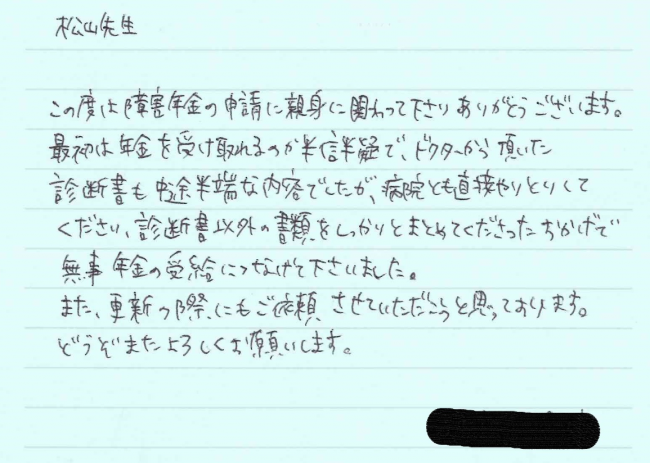 松山先生
この度は障害年金の申請に親身に関わって下さりありがとうございます。
最初は年金を受け取れるのか半信半疑で、ドクターから頂いた
診断書も中途半端な内容でしたが、病院とも直接やりとりして
ください、診断書以外の書類をしっかりとまとめてくださったおかげで
無事年金の受給につなげて下さいました。
また、更新の際にもご依頼させていただこうと思っております。
どうぞまたよろしくお願いします。